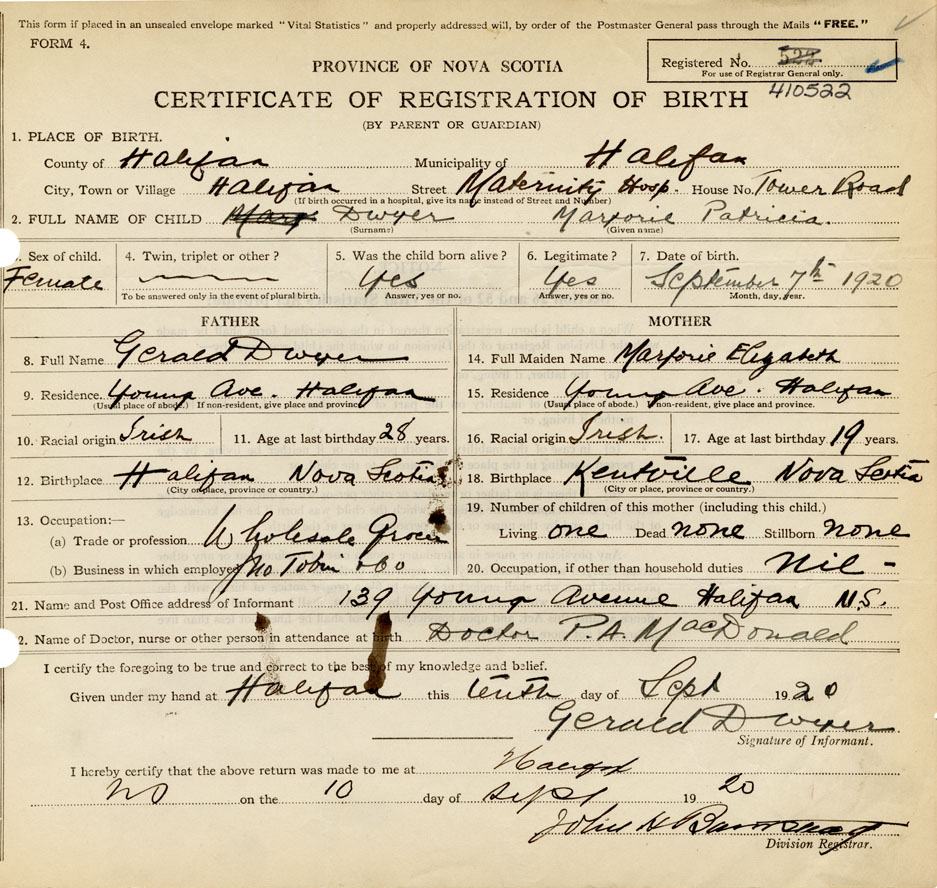 This form if placed in an unsealed envelope marked "Vital Statistics" and properly addressed will, by order of the Postmaster General pass through the Mails "FREE."
FORM 4.
Registered No. 522
For use of Registrar General only.
410522
PROVINCE OF NOVA SCOTIA
CERTIFICATE OF REGISTRATION OF BIRTH
(BY PARENT OR GUARDIAN)
1. PLACE OF BIRTH.
County of Halifax Municipality of Halifax
City, Town or Village Halifax Street Maternity Hosp. House No. Tower Road
(If birth occurred in a hospital, give its name instead of Street and Number)
2. FULL NAME OF CHILD Dwyer Marjorie Patricia.
(Surname) (Given name)
. Sex of child. 4. Twin, triplet or other? 5. Was the child born alive? 6. Legitimate? 7. Date of birth.
Female Yes Yes September 7th 1920
To be answered only in the event of plural birth. Answer, yes or no. Answer, yes or no. Month, day, year.
FATHER MOTHER
8. Full Name Gerald Dwyer 14. Full Maiden Name Marjorie Elizabeth
9. Residence. Young Ave. Halifax 15. Residence Young Ave. Halifax
(Usual place of abode.) If non-resident, give place and province. (Usual place of abode.) If non-resident, give place and province.
10. Racial origin Irish 11. Age at last birthday 28 years. 16. Racial origin Irish. 17. Age at last birthday 19 years.
12. Birthplace Halifax Nova Scotia 18. Birthplace Kentville Nova Scotia
(City or place, province or country.) (City or place, province or country.)
13. Occupation:— 19. Number of children of this mother (including this child.)
(a) Trade or profession Wholesale Grocer Living one Dead none Stillborn none
(b) Business in which employed Jno Tobin & Co 20. Occupation, if other than household duties Nil -
21. Name and Post Office address of Informant 139 Young Avenue Halifax N.S.
2. Name of Doctor, nurse or other person in attendance at birth Doctor P.A. MacDonald
I certify the foregoing to be true and correct to the best of my knowledge and belief.
Given under my hand at Halifax this tenth day of Sept 1920
Gerald Dwyer
Signature of Informant.
I hereby certify that the above return was made to me at Halifax
NS on the 10 day of Sept 1920
John H
Division Registrar.